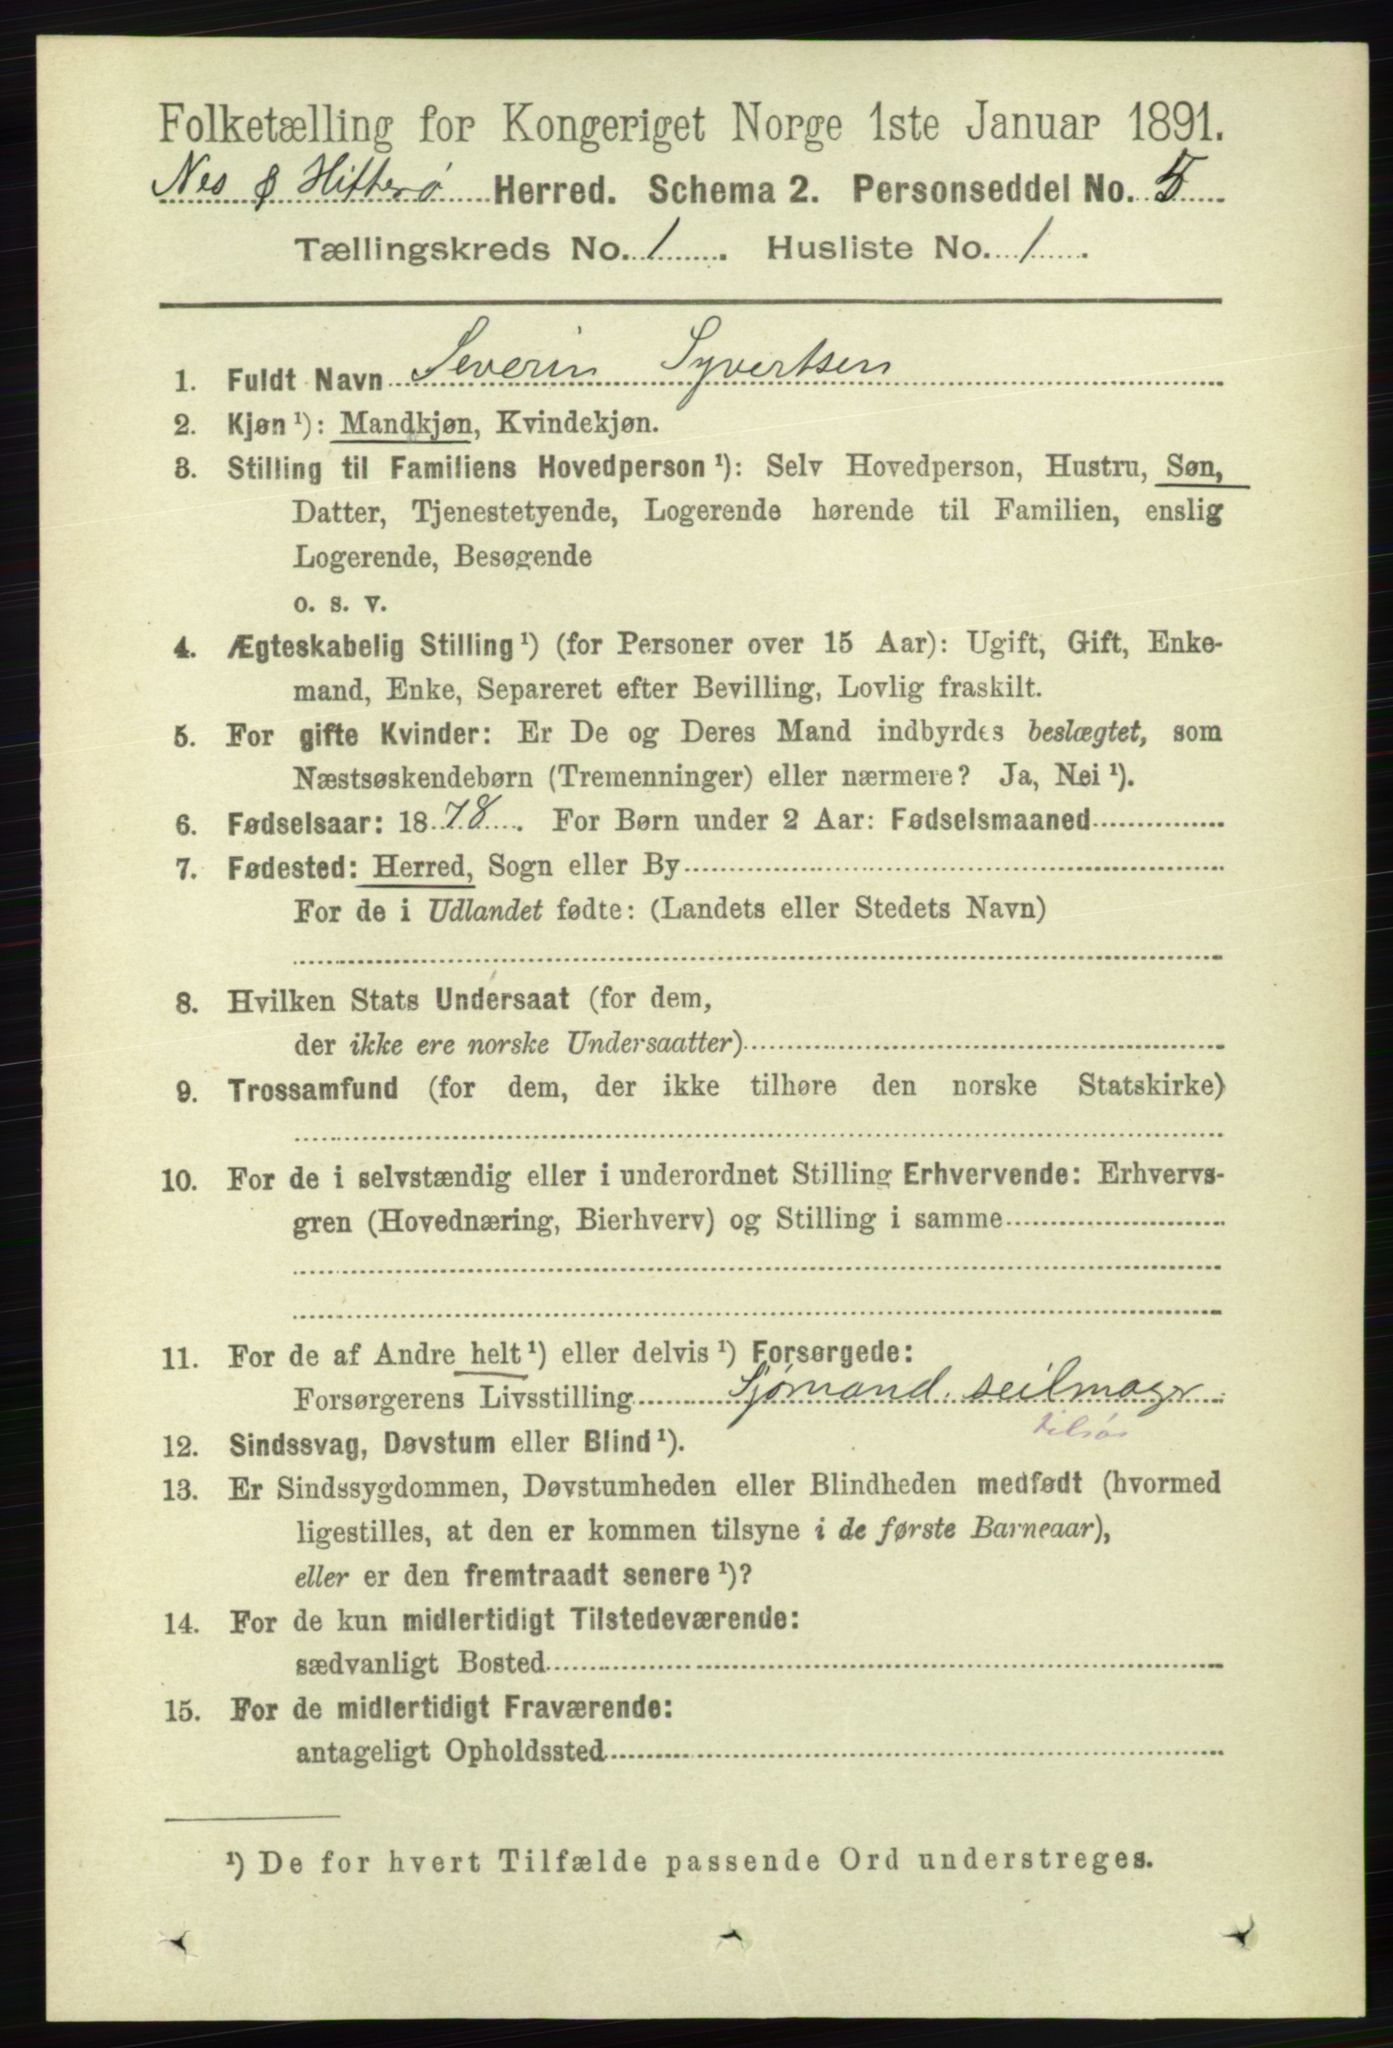 Folketælling for Kongeriget Norge 1ste Januar 1891.
Nes & Hitterø Herred. Schema 2. Personseddel No. 5
Tællingskreds No. 1. Husliste No. 1.
1. Fuldt Navn Severin Syvertsen
2. Kjøn ¹): Mandkjøn, Kvindekjøn.
3. Stilling til Familiens Hovedperson ¹): Selv Hovedperson, Hustru, Søn,
Datter, Tjenestetyende, Logerende hørende til Familien, enslig
Logerende, Besøgende
o. s. v.
4. Ægteskabelig Stilling ¹) (for Personer over 15 Aar): Ugift, Gift, Enke-
mand, Enke, Separeret efter Bevilling, Lovlig fraskilt.
5. For gifte Kvinder: Er De og Deres Mand indbyrdes beslægtet, som
Næstsøskendebørn (Tremenninger) eller nærmere? Ja, Nei ¹).
6. Fødselsaar: 1878. For Børn under 2 Aar: Fødselsmaaned
7. Fødested: Herred, Sogn eller By
For de i Udlandet fødte: (Landets eller Stedets Navn)
8. Hvilken Stats Undersaat (for dem,
der ikke ere norske Undersaatter)
9. Trossamfund (for dem, der ikke tilhøre den norske Statskirke)
10. For de i selvstændig eller i underordnet Stilling Erhvervende: Erhvervs-
gren (Hovednæring, Bierhverv) og Stilling i samme
11. For de af Andre helt ¹) eller delvis ¹) Forsørgede:
Forsørgerens Livsstilling Sjømand. seilmager
tilsøs
12. Sindssvag, Døvstum eller Blind ¹).
13. Er Sindssygdommen, Døvstumheden eller Blindheden medfødt (hvormed
ligestilles, at den er kommen tilsyne i de første Barneaar),
eller er den fremtraadt senere ¹)?
14. For de kun midlertidigt Tilstedeværende:
sædvanligt Bosted
15. For de midlertidigt Fraværende:
antageligt Opholdssted
¹) De for hvert Tilfælde passende Ord understreges.